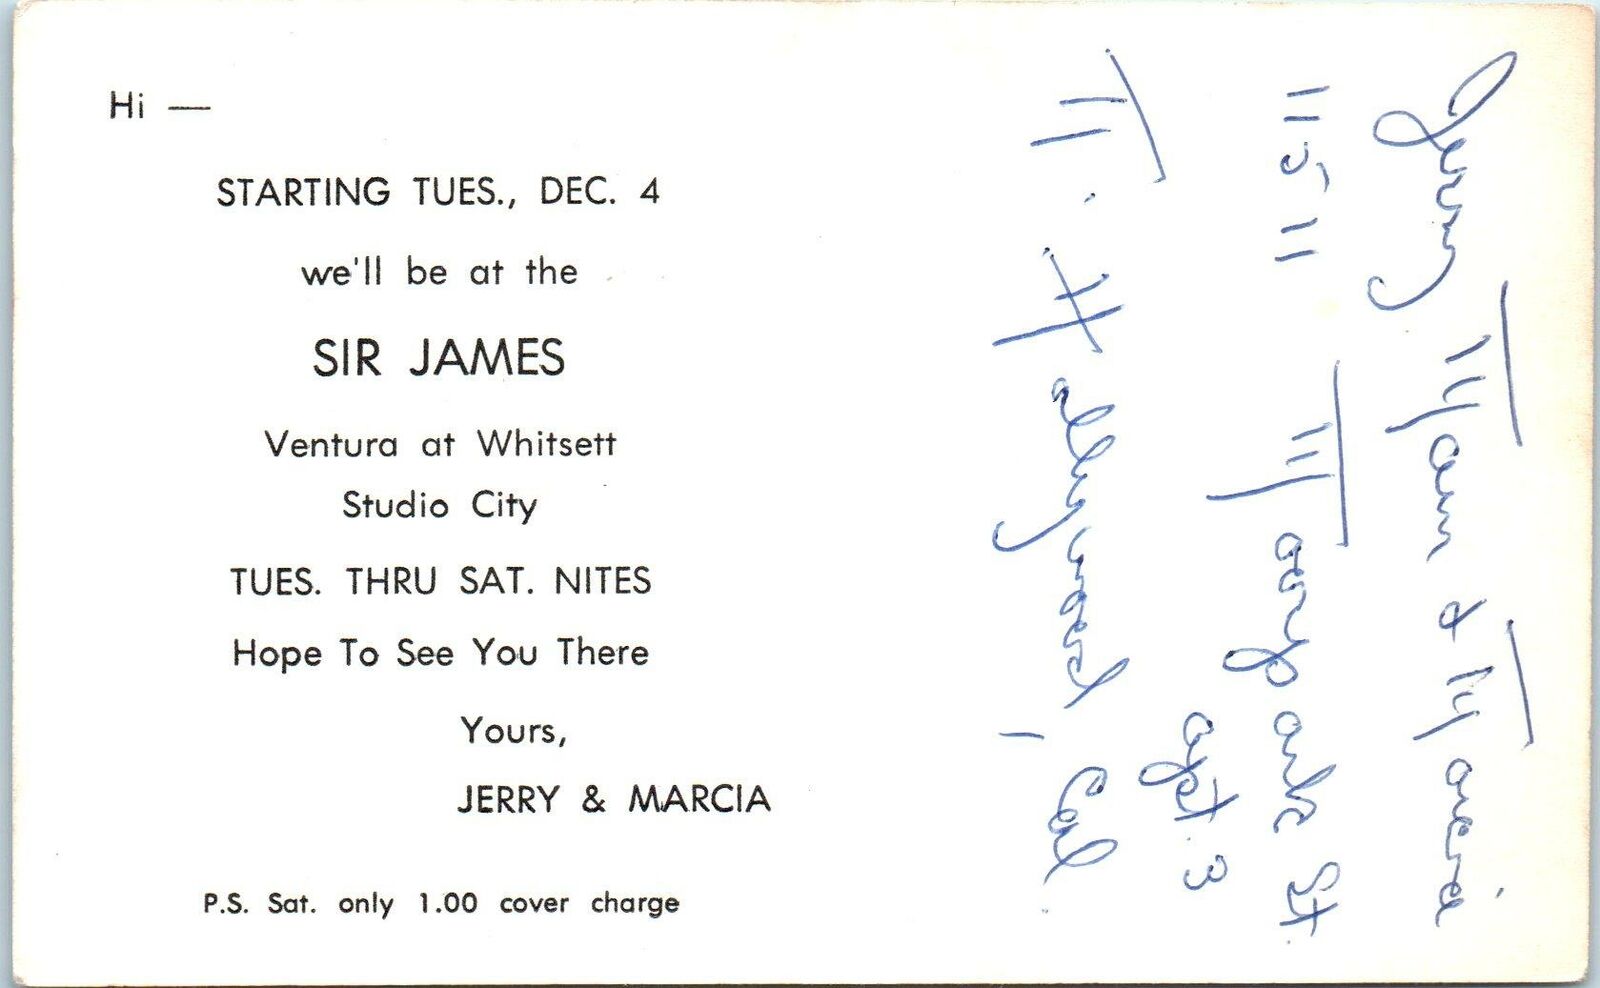 Hi —
STARTING TUES., DEC. 4
we'll be at the
SIR JAMES
Ventura at Whitsett
Studio City
TUES. THRU SAT. NITES
Hope To See You There
Yours,
JERRY & MARCIA
P.S. Sat. only 1.00 cover charge
Jerry & Marcia
11511 Moorpark St.
apt. 3
N. Hollywood, Cal.